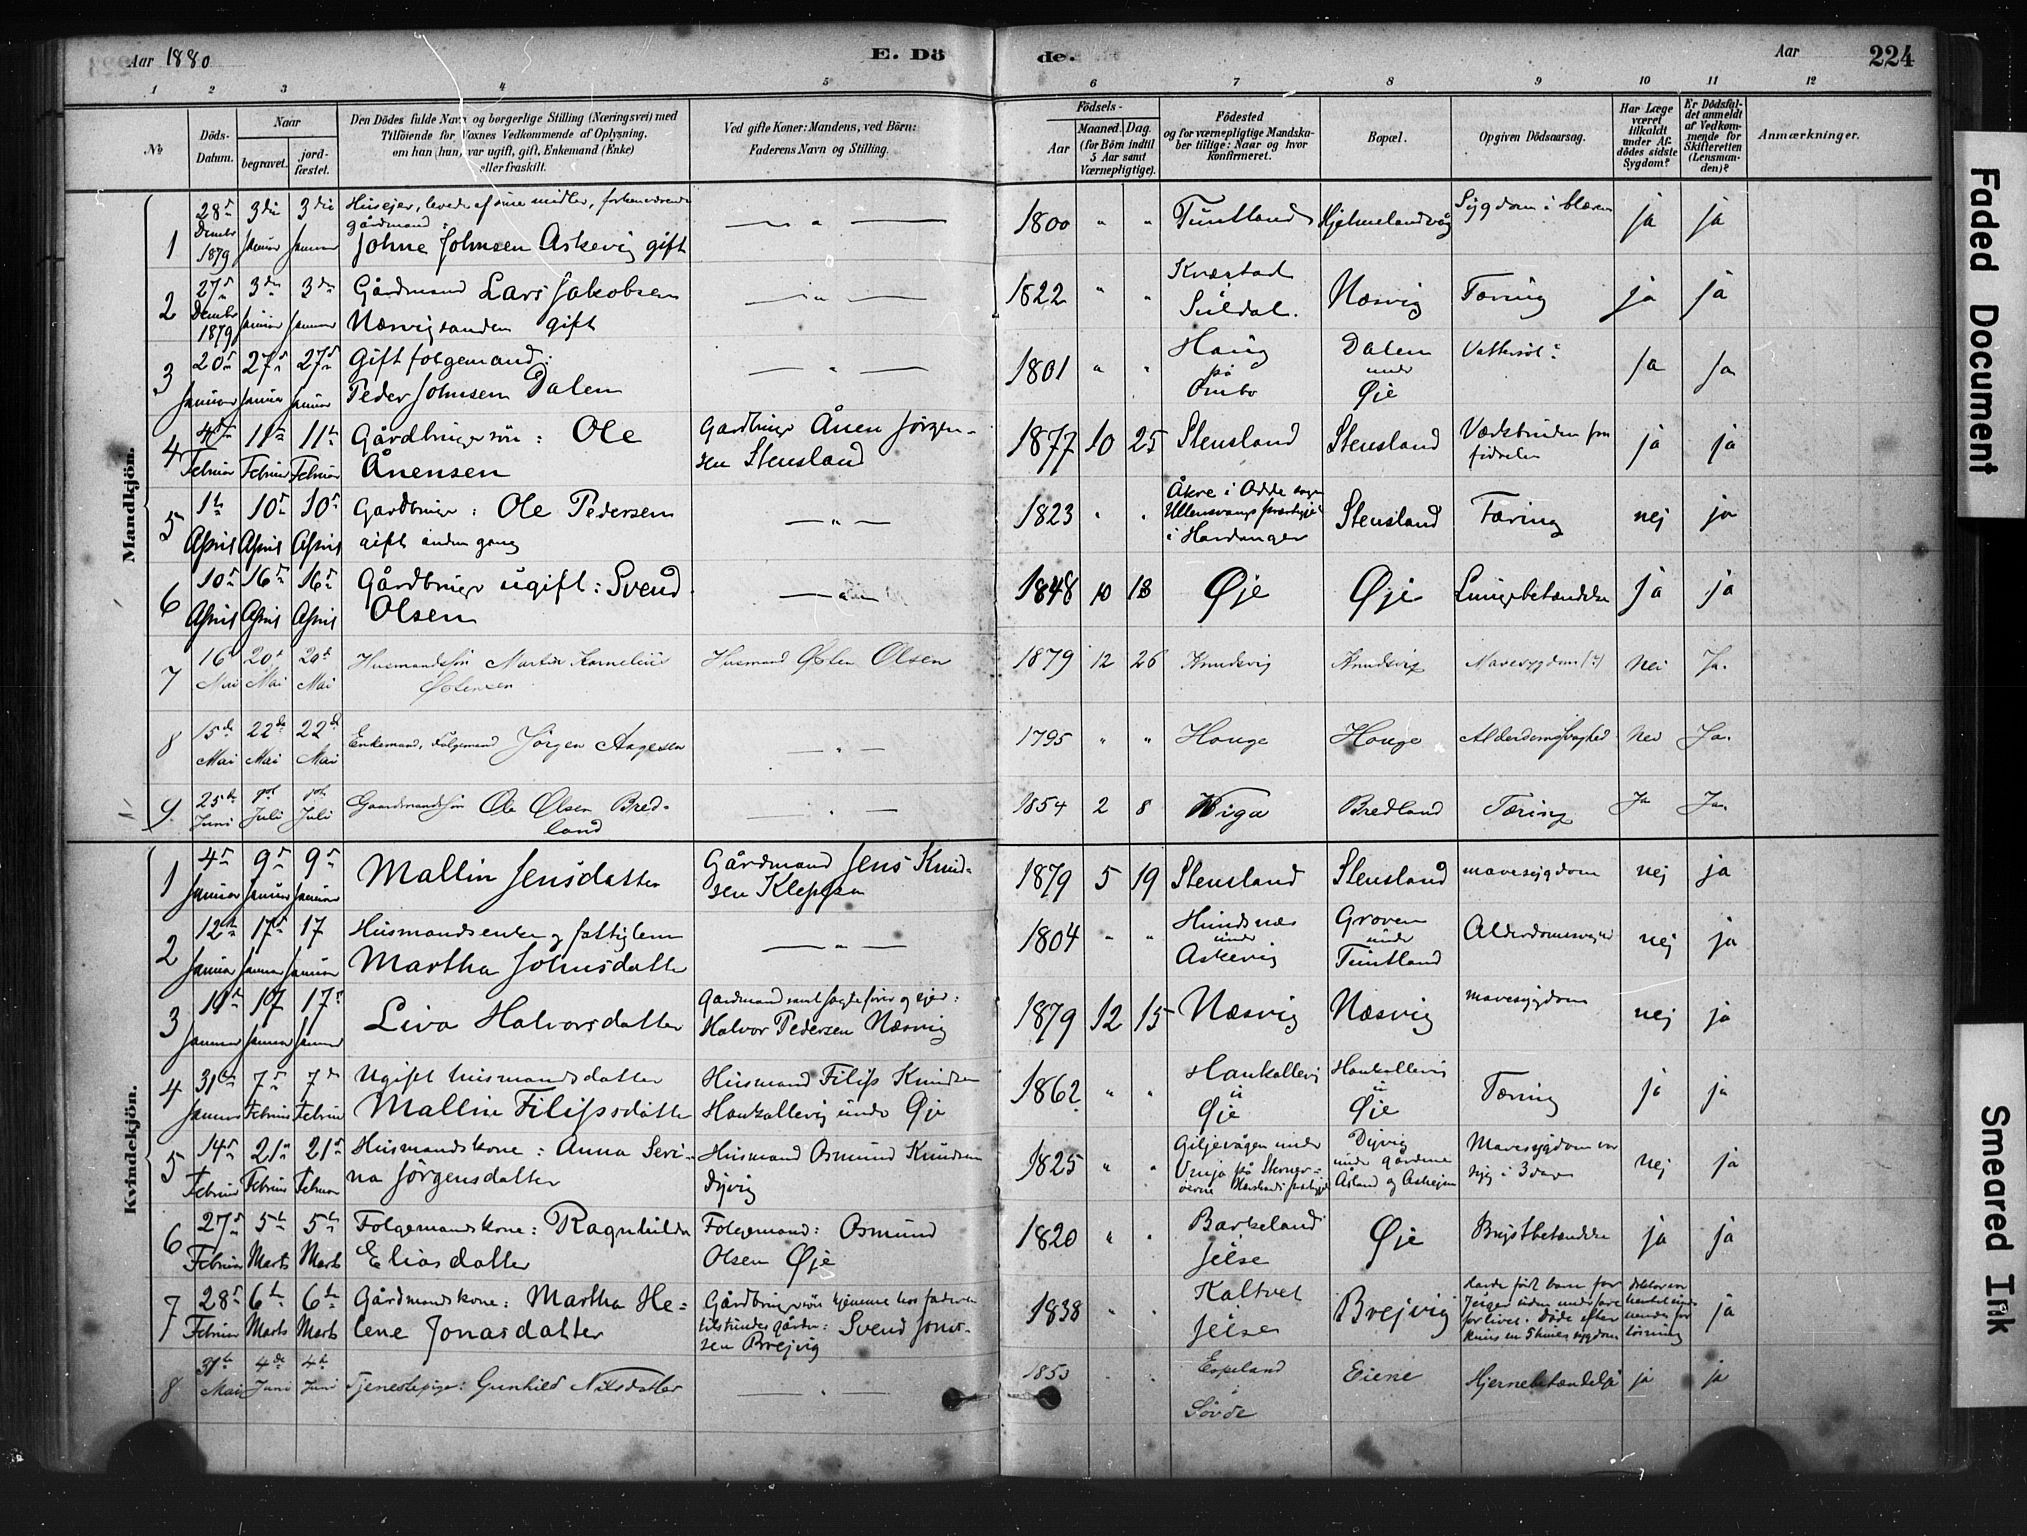 Aar 1880
E. Dö
de.
Aar
224
1 2 3 4 5 6 7 8 9 10 11 12
No
Döds-Datum.
Naar
begravet.
jord-fæstet.
Den Dödes fulde Navn og borgerlige Stilling (Næringsvei) med
Tilföiende for Voxnes Vedkommende af Oplysning,
om han (hun) var ugift, gift, Enkemand (Enke)
eller fraskilt.
Ved gifte Koner: Mandens, ved Börn:
Faderens Navn og Stilling.
Födsels-
Aar
Maaned. Dag.
(for Börn indtil
5 Aar samt
Værnepligtige).
Födested
og for værnepligtige Mandska-
ber tillige: Naar og hvor
konfirmeret.
Bopæl.
Opgiven Dödsaarsag.
Har Læge
været
tilkaldt
under Af-
dödes sidste
Sygdom?
Er Dödsfal-
det anmeldt
af Vedkom-
mende for
Skifteretten
(Lensman-
den)?
Anmærkninger.
Mandkjön.
1 28 Dembr 1879 3die Januar 3die Januar Husejer, levede af sine midler, forhenværende
gårdmand:
Johne Johnsen Askevig gift — " — 1800 " " Tuntland Hjelmelandvåg Sygdom i blæren ja ja
2 27 Dembr 1879 3die Januar 3die Januar Gårdmand Lars Jakobsen
Næsvigsanden gift — " — 1822 " " Kvæstad
Suldal. Næsvig Tæring ja ja
3 20 Januar 27 Januar 27 Januar Gift folgemand:
Peder Johnsen Dalen — " — 1801 " " Haug
på
Ombo Dalen
under
Øje Vattersot ja ja
4 4 Februar 11te Februar 11te Februar Gårdbruger søn: Ole
Ånensen Gardbruger Ånen Jørgen-
sen Stensland 1877 10 25 Stensland Stensland fra
fødselen ja ja
5 1te April 10 April 10 April Gardbruger: Ole Pedersen
gift anden gang — " — 1823 " " Åkre i Odde sogn
Ullensvangs præstegjæld
i Hardanger Stensland Tæring nej ja
6 10 April 16 April 16 April Gårdbruger ugift: Svend
Olsen — " — 1848 10 18 Øje Øje Lungebetændelse ja ja
7 16 Mai 20de Mai 20de Mai Husmandssøn Martin Kornelius
Østensen Husmand Østen Olsen 1879 12 26 Knudsvig Knudsvig Mavesygdom (?) Nei Ja.
8 15de Mai 22de Mai 22de Mai Enkemand, Folgemand Jørgen Aagesen — " — 1795 " " Houge Houge Alderdomssvaghed Nei Ja.
9 25de Juni Juli Juli Gaardmandssøn Ole Olsen Bred-
land — " — 1854 2 8 Wiga Bredland Tæring Ja Ja.
Kvindekjön.
1 4 Januar 9 Januar 9 Januar Mallin Jensdatter Gårdmand Jens Knud-
sen Kleppen 1879 5 19 Stensland Stensland mavesygdom nej ja
2 12te Januar 17 Januar 17 Januar Husmandsenke og fattiglem
Martha Johnsdatter — " — 1804 " " Hundsnæs
under
Askevig Groven
under
Tuntland Alderdomssvaghed nej ja
3 Januar 17 Januar 17 Januar Liva Halvorsdatter Gardmand samt
Halvor Pedersen Næsvig 1879 12 15 Næsvig Næsvig mavesygdom nej ja
4 31te Januar 7 Februar 7 Februar Ugift husmandsdatter
Mallin Filipsdatter Husmand Filip Knudsen
Haukallevig under Øje 1862 " " Haukallevig
u
Øje Haukallevig
u
Øje Tæring ja ja
5 14 Februar 21 Februar 21 Februar Husmandskone: Anna Seri-
na Jørgensdatter Husmand Osmund Knudsen
Dyvig 1825 " " Giljevågen under
på Dyvig
under gårdene
Åsland og Mavesygdom var
syg i 3 dage nej ja
6 27 Februar 5te Marts 5te Marts Folgemandskone: Ragnhilda
Eliasdatter Folgemand: Osmund
Olsen Øje 1820 " " Barkeland
Jelse Øje Brystbetændelse ja ja
7 28 Februar 6te Marts 6te Marts Gårdmandskone: Martha He-
lene Jonasdatter Gårdbrugersøn hos faderen
Svend Jonas-
sen Brejvig 1838 " " Kaltvet
Jelse Brejvig Havde født barn for
Døde efter
kun en sygdom doktor var
hentet ja
8 31te Mai 4de Juni 4de Juni Tjenestepige: Gunhild Nilsdatter — " — 1853 " " Espeland
i
Søvde Eiene Hjernebetændelse ja ja
Faded Document
Smeared Ink